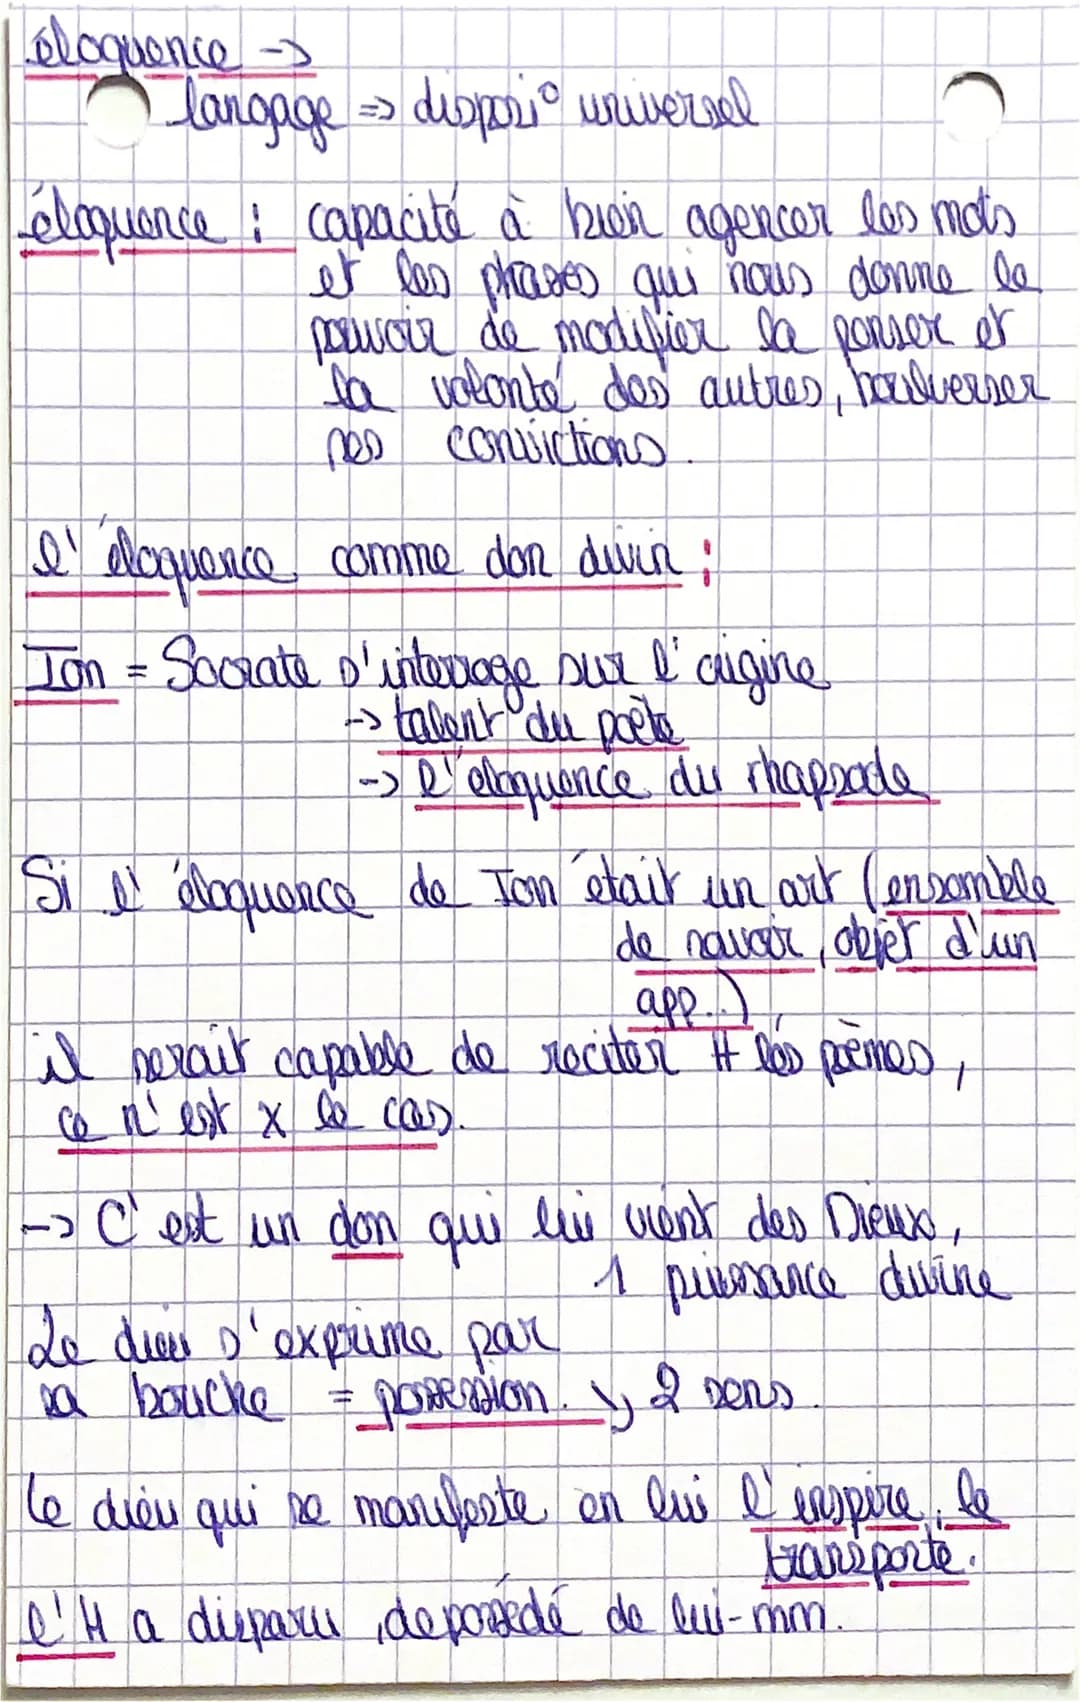 éloquence ->
langage => disposi° universel
éloquence : capacité à bien agencer les mots
et les phrases qui nous donne le
pouvoir de modifier la penser et
la volonté des autres, boulverser
ses convictions.
l'éloquence comme don divin :
Ion = Socrate s'interroge sur l'origine
-> talent du poète
-> l'éloquence du rhapsode
Si l'éloquence de Ion était un art (ensemble
de savoir, objet d'un
app..)
il serait capable de reciter tt les poèmes,
ce n'est x le cas.
-> C'est un don qui lui vient des Dieux,
1 puissance divine
Le dieu s'exprime par
sa bouche = possession. ↘ 2 sens.
le dieu qui se manifeste en lui l'inspire, le
transporte.
l'H a disparu, depossédé de lui-mm.